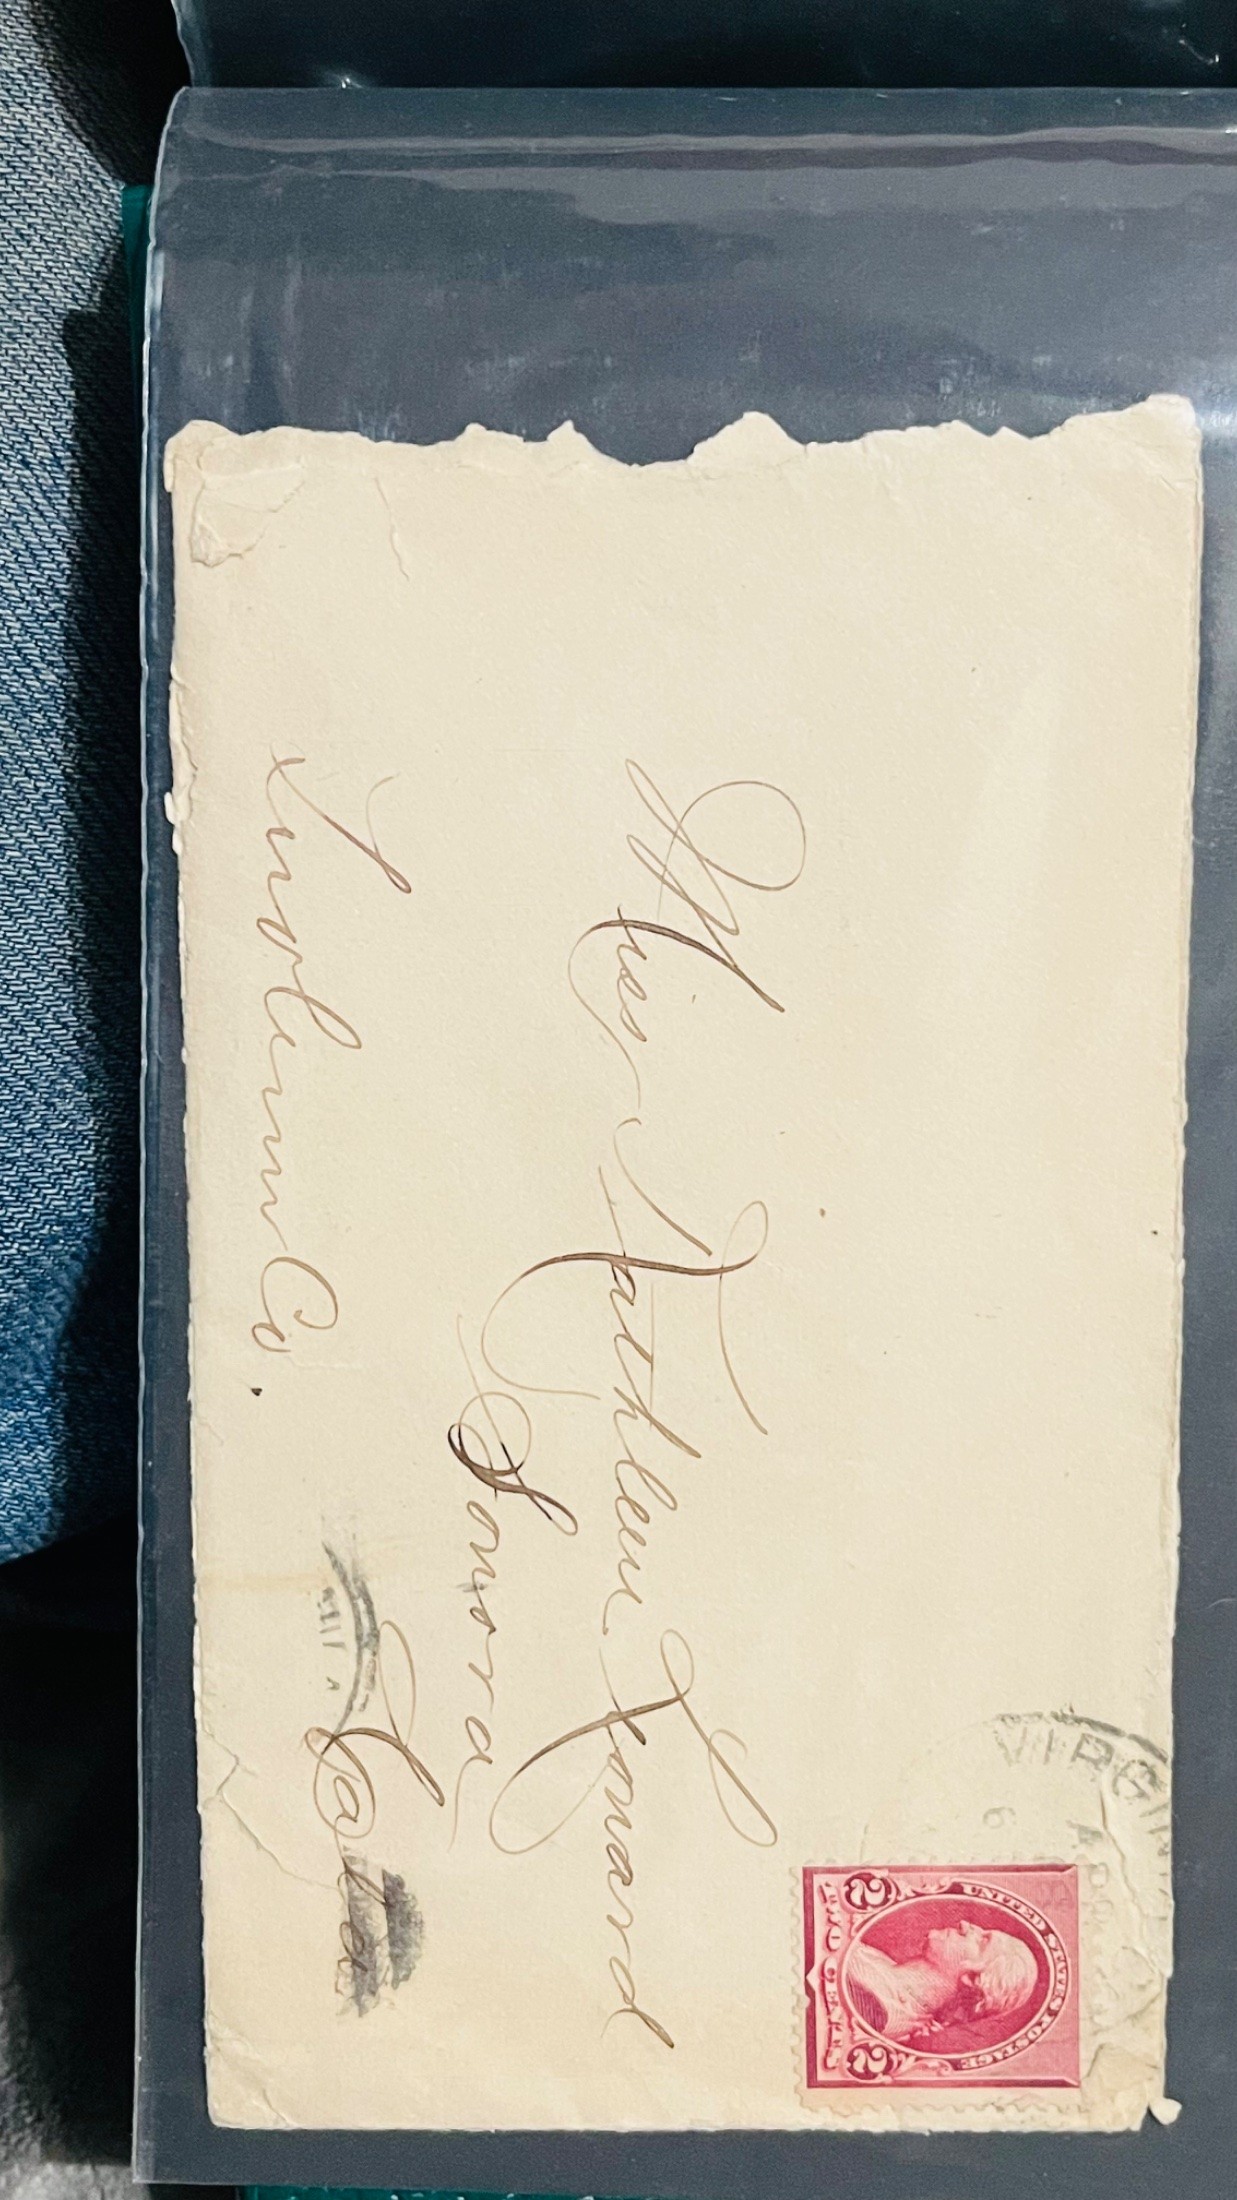 VIRGIN
6 AP
UNITED STATES POSTAGE
2 2
TWO CENTS
Miss Kathleen Lonard
Sonora
Tuolumne Co. Cala